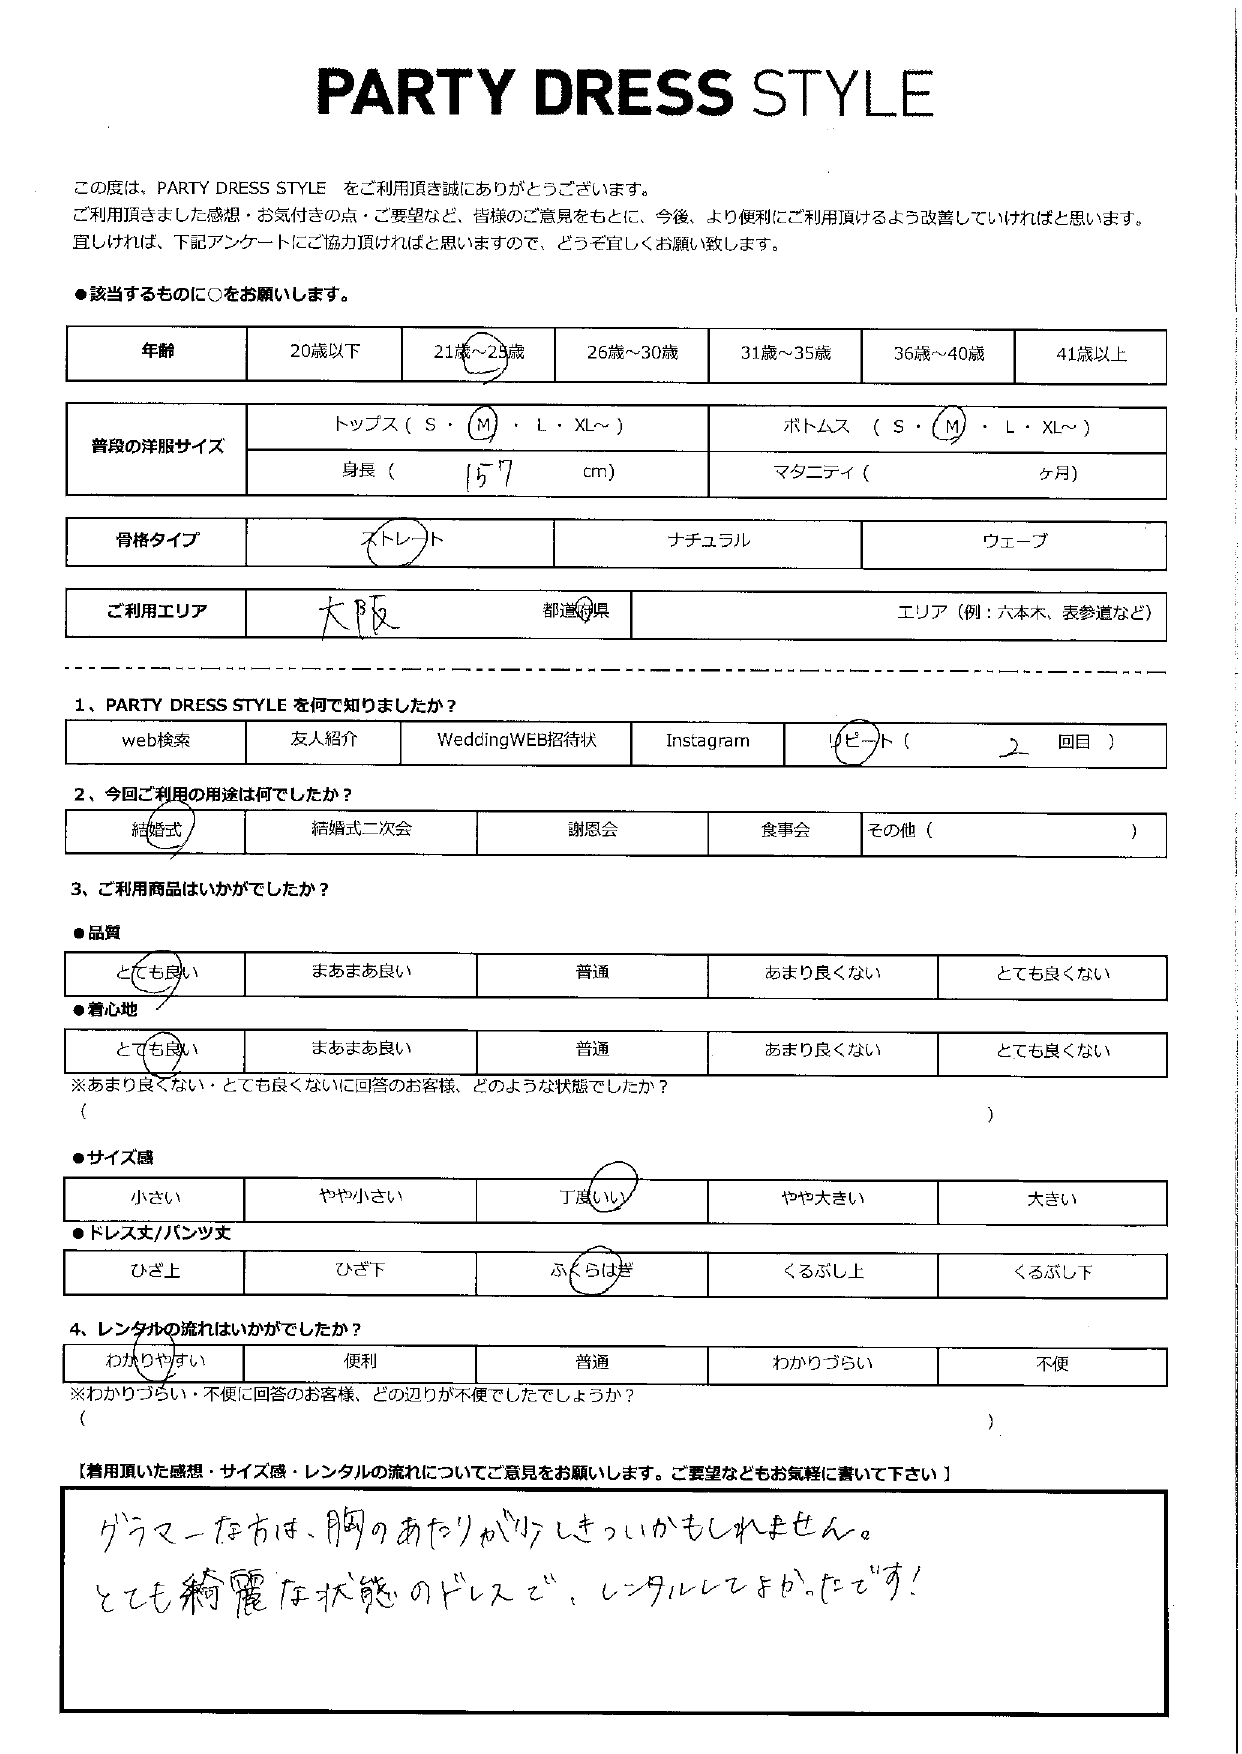 PARTY DRESS STYLE
この度は、PARTY DRESS STYLE をご利用頂き誠にありがとうございます。
ご利用頂きました感想・お気付きの点・ご要望など、皆様のご意見をもとに、今後、より便利にご利用頂けるよう改善していければと思います。
宜しければ、下記アンケートにご協力頂ければと思いますので、どうぞ宜しくお願い致します。
●該当するものに○をお願いします。
年齢 20歳以下 21歳～25歳 26歳～30歳 31歳～35歳 36歳～40歳 41歳以上
普段の洋服サイズ トップス ( S ・ M ・ L ・ XL～ ) ボトムス ( S ・ M ・ L ・ XL～ )
身長 ( 157 cm) マタニティ ( ヶ月)
骨格タイプ ストレート ナチュラル ウェーブ
ご利用エリア 大阪 都道府県 エリア（例：六本木、表参道など）
1、PARTY DRESS STYLE を何で知りましたか？
web検索 友人紹介 WeddingWEB招待状 Instagram リピート ( 2 回目 )
2、今回ご利用の用途は何でしたか？
結婚式 結婚式二次会 謝恩会 食事会 その他 ( )
3、ご利用商品はいかがでしたか？
●品質
とても良い まあまあ良い 普通 あまり良くない とても良くない
●着心地
とても良い まあまあ良い 普通 あまり良くない とても良くない
※あまり良くない・とても良くないに回答のお客様、どのような状態でしたか？
( )
●サイズ感
小さい やや小さい 丁度いい やや大きい 大きい
●ドレス丈/パンツ丈
ひざ上 ひざ下 ふくらはぎ くるぶし上 くるぶし下
4、レンタルの流れはいかがでしたか？
わかりやすい 便利 普通 わかりづらい 不便
※わかりづらい・不便に回答のお客様、どの辺りが不便でしたでしょうか？
( )
【着用頂いた感想・サイズ感・レンタルの流れについてご意見をお願いします。ご要望などもお気軽に書いて下さい 】
グラマーな方は、胸のあたりが少しきついかもしれません。
とても綺麗な状態のドレスで、レンタルしてよかったです!